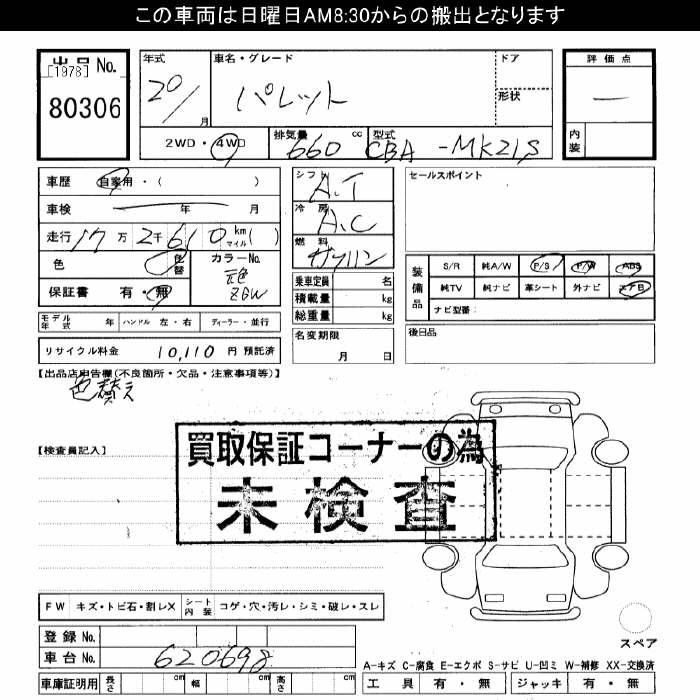 この車両は日曜日AM8:30からの搬出となります
出品No.
[1978]
80306
年式 20/ 月
車名・グレード パレット
ドア
形状
評価点 一
内装
2WD・4WD
排気量 660 cc
型式 CBA-MK21S
車歴 自家用・( )
車検 年 月
走行 17万2千610km マイル( )
色 色替
カラーNo. 元色 ZGW
保証書 有・無
シフト A.T
冷房 A.C
燃料 ガソリン
乗車定員 名
積載量 kg
総重量 kg
セールスポイント
装備品
S/R 純A/W P/S P/W ABS
純TV 純ナビ 革シート 外ナビ エアB
ナビ型番:
モデル年式 年 ハンドル 左・右 ディーラー・並行
リサイクル料金 10,110 円 預託済
名変期限 月 日
後日品
【出品店申告欄(不良箇所・欠品・注意事項等)】
色替え
【検査員記入】
買取保証コーナーの為
未検査
FW キズ・トビ石・割レX シート内装 コゲ・穴・汚レ・シミ・破レ・スレ
登録No.
車台No. 620698
車庫証明用 長さ cm 幅 cm 高さ cm
スペア
A-キズ C-腐食 E-エクボ S-サビ U-凹ミ W-補修 XX-交換済
工具 有・無 ジャッキ 有・無